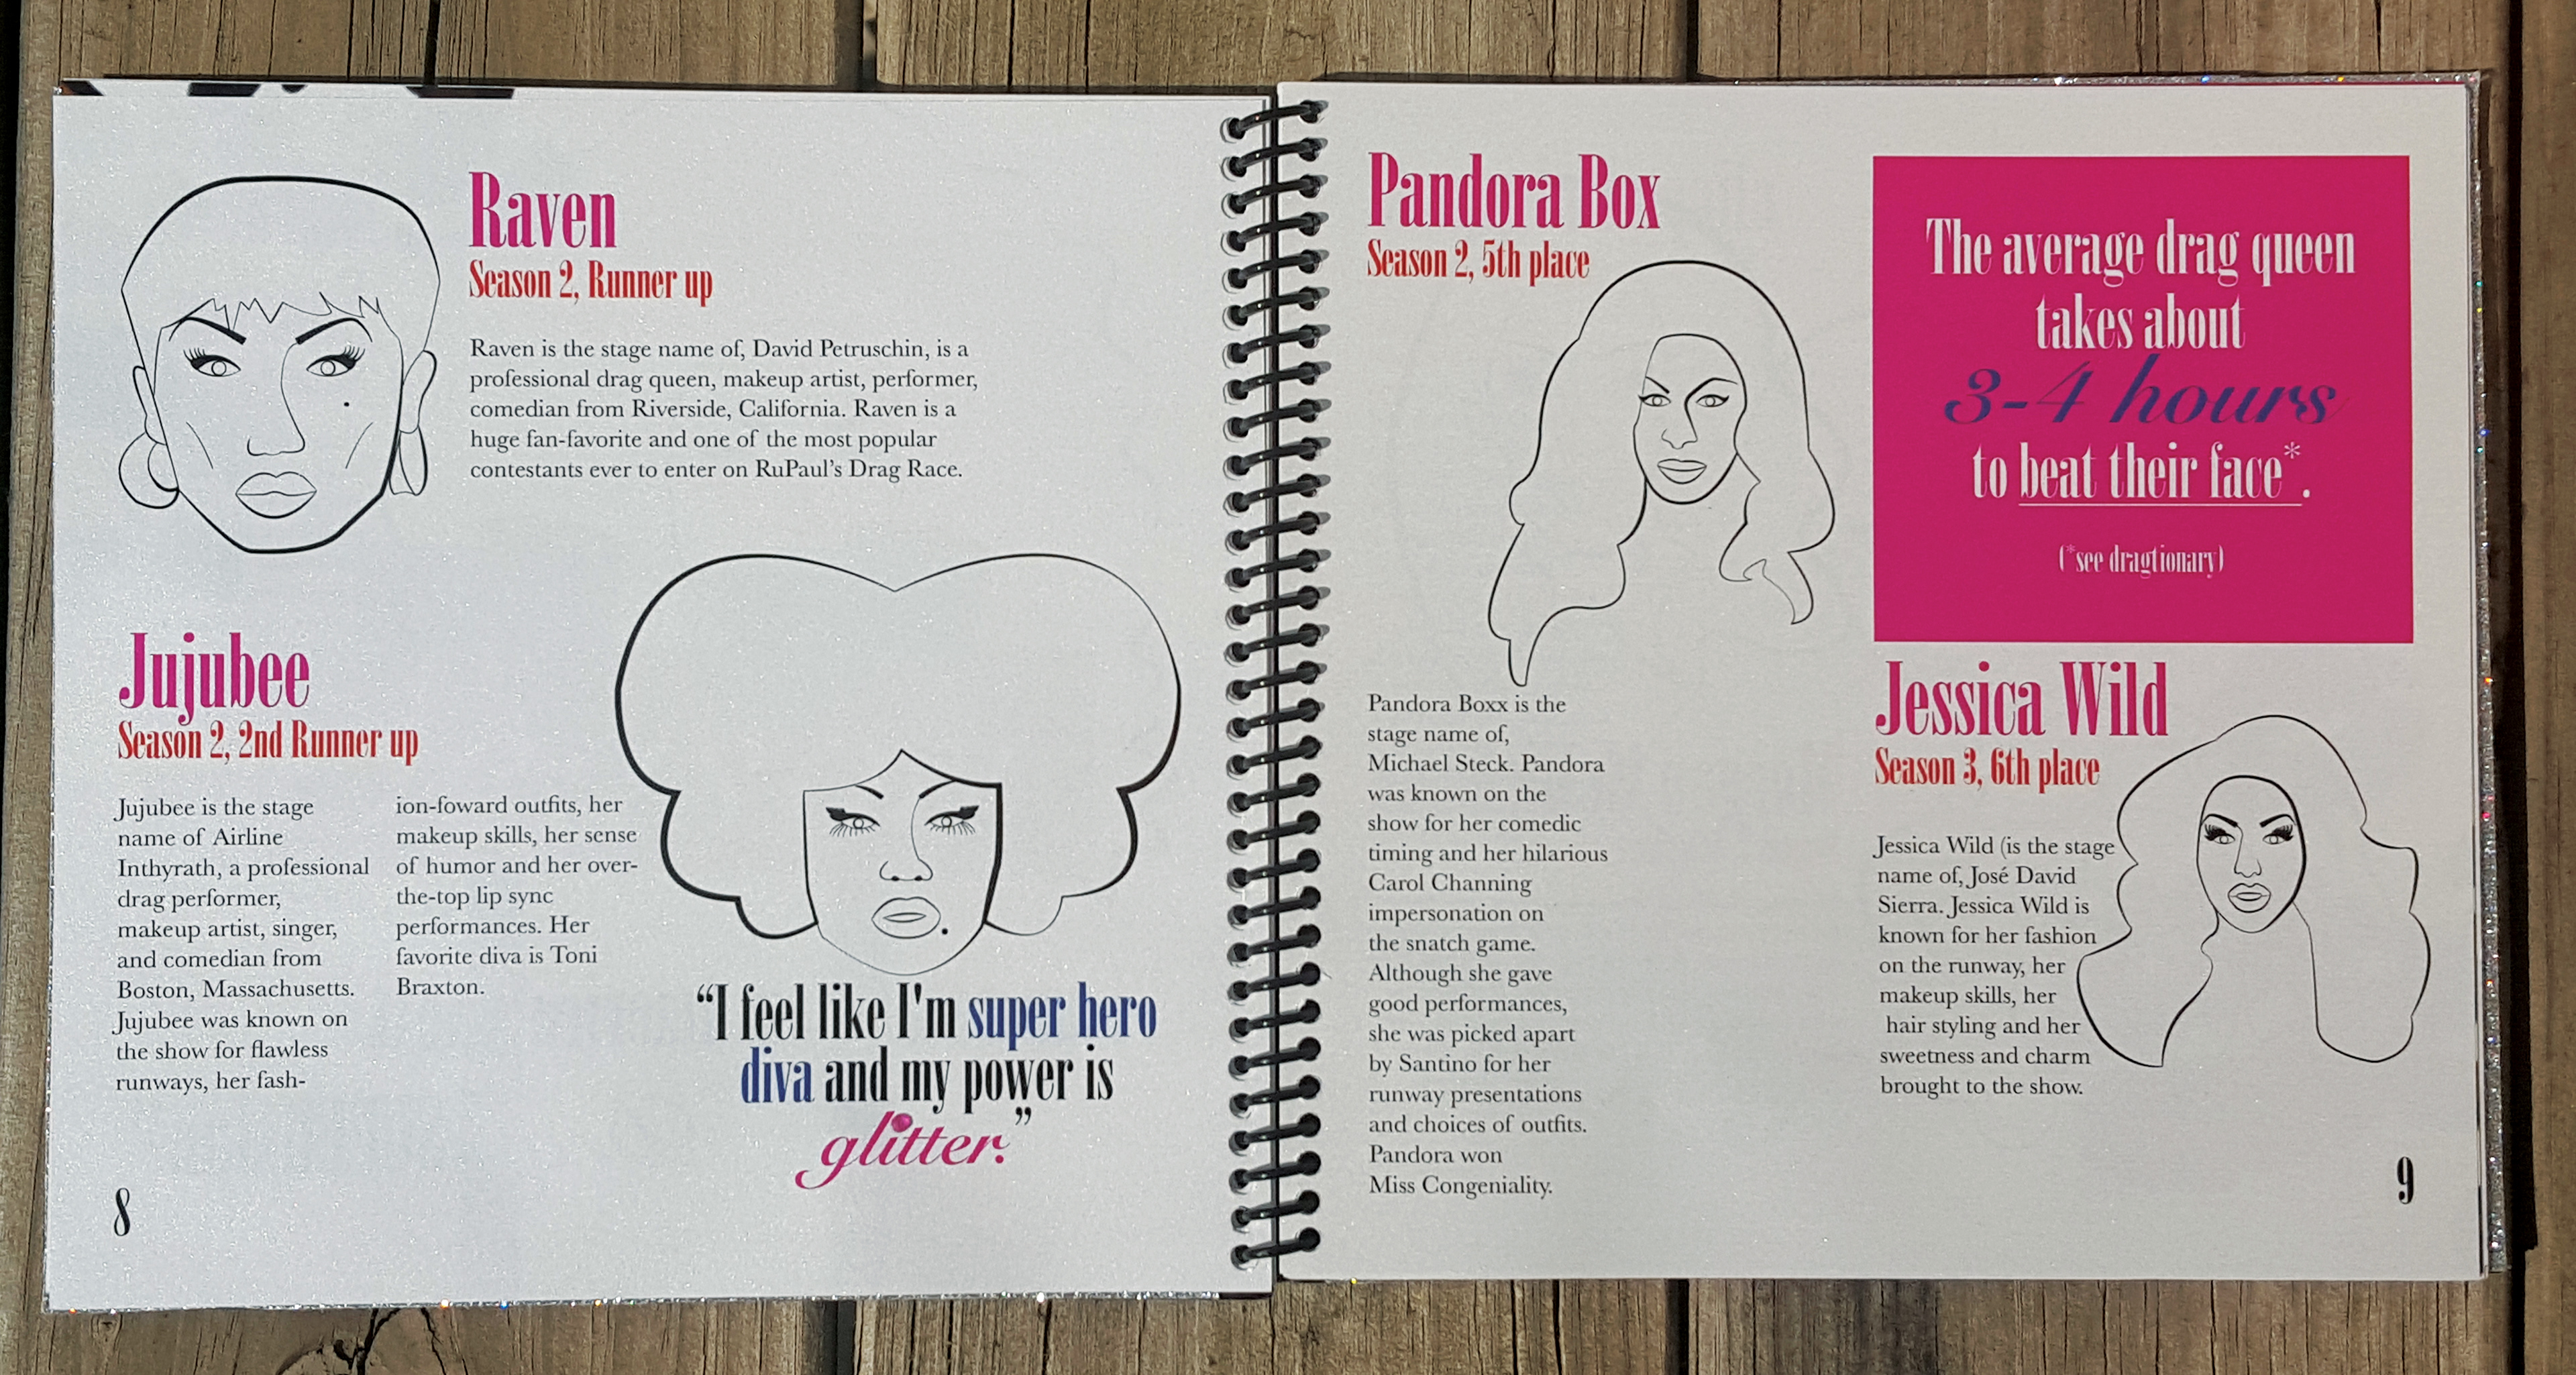 Raven
Season 2, Runner up
Raven is the stage name of, David Petruschin, is a
professional drag queen, makeup artist, performer,
comedian from Riverside, California. Raven is a
huge fan-favorite and one of the most popular
contestants ever to enter on RuPaul’s Drag Race.
Jujubee
Season 2, 2nd Runner up
Jujubee is the stage
name of Airline
Inthyrath, a professional
drag performer,
makeup artist, singer,
and comedian from
Boston, Massachusetts.
Jujubee was known on
the show for flawless
runways, her fash-
ion-foward outfits, her
makeup skills, her sense
of humor and her over-
the-top lip sync
performances. Her
favorite diva is Toni
Braxton.
“I feel like I'm super hero
diva and my power is
glitter.”
8
Pandora Box
Season 2, 5th place
Pandora Boxx is the
stage name of,
Michael Steck. Pandora
was known on the
show for her comedic
timing and her hilarious
Carol Channing
impersonation on
the snatch game.
Although she gave
good performances,
she was picked apart
by Santino for her
runway presentations
and choices of outfits.
Pandora won
Miss Congeniality.
The average drag queen
takes about
3-4 hours
to beat their face*.
(*see dragtionary)
Jessica Wild
Season 3, 6th place
Jessica Wild (is the stage
name of, José David
Sierra. Jessica Wild is
known for her fashion
on the runway, her
makeup skills, her
hair styling and her
sweetness and charm
brought to the show.
9